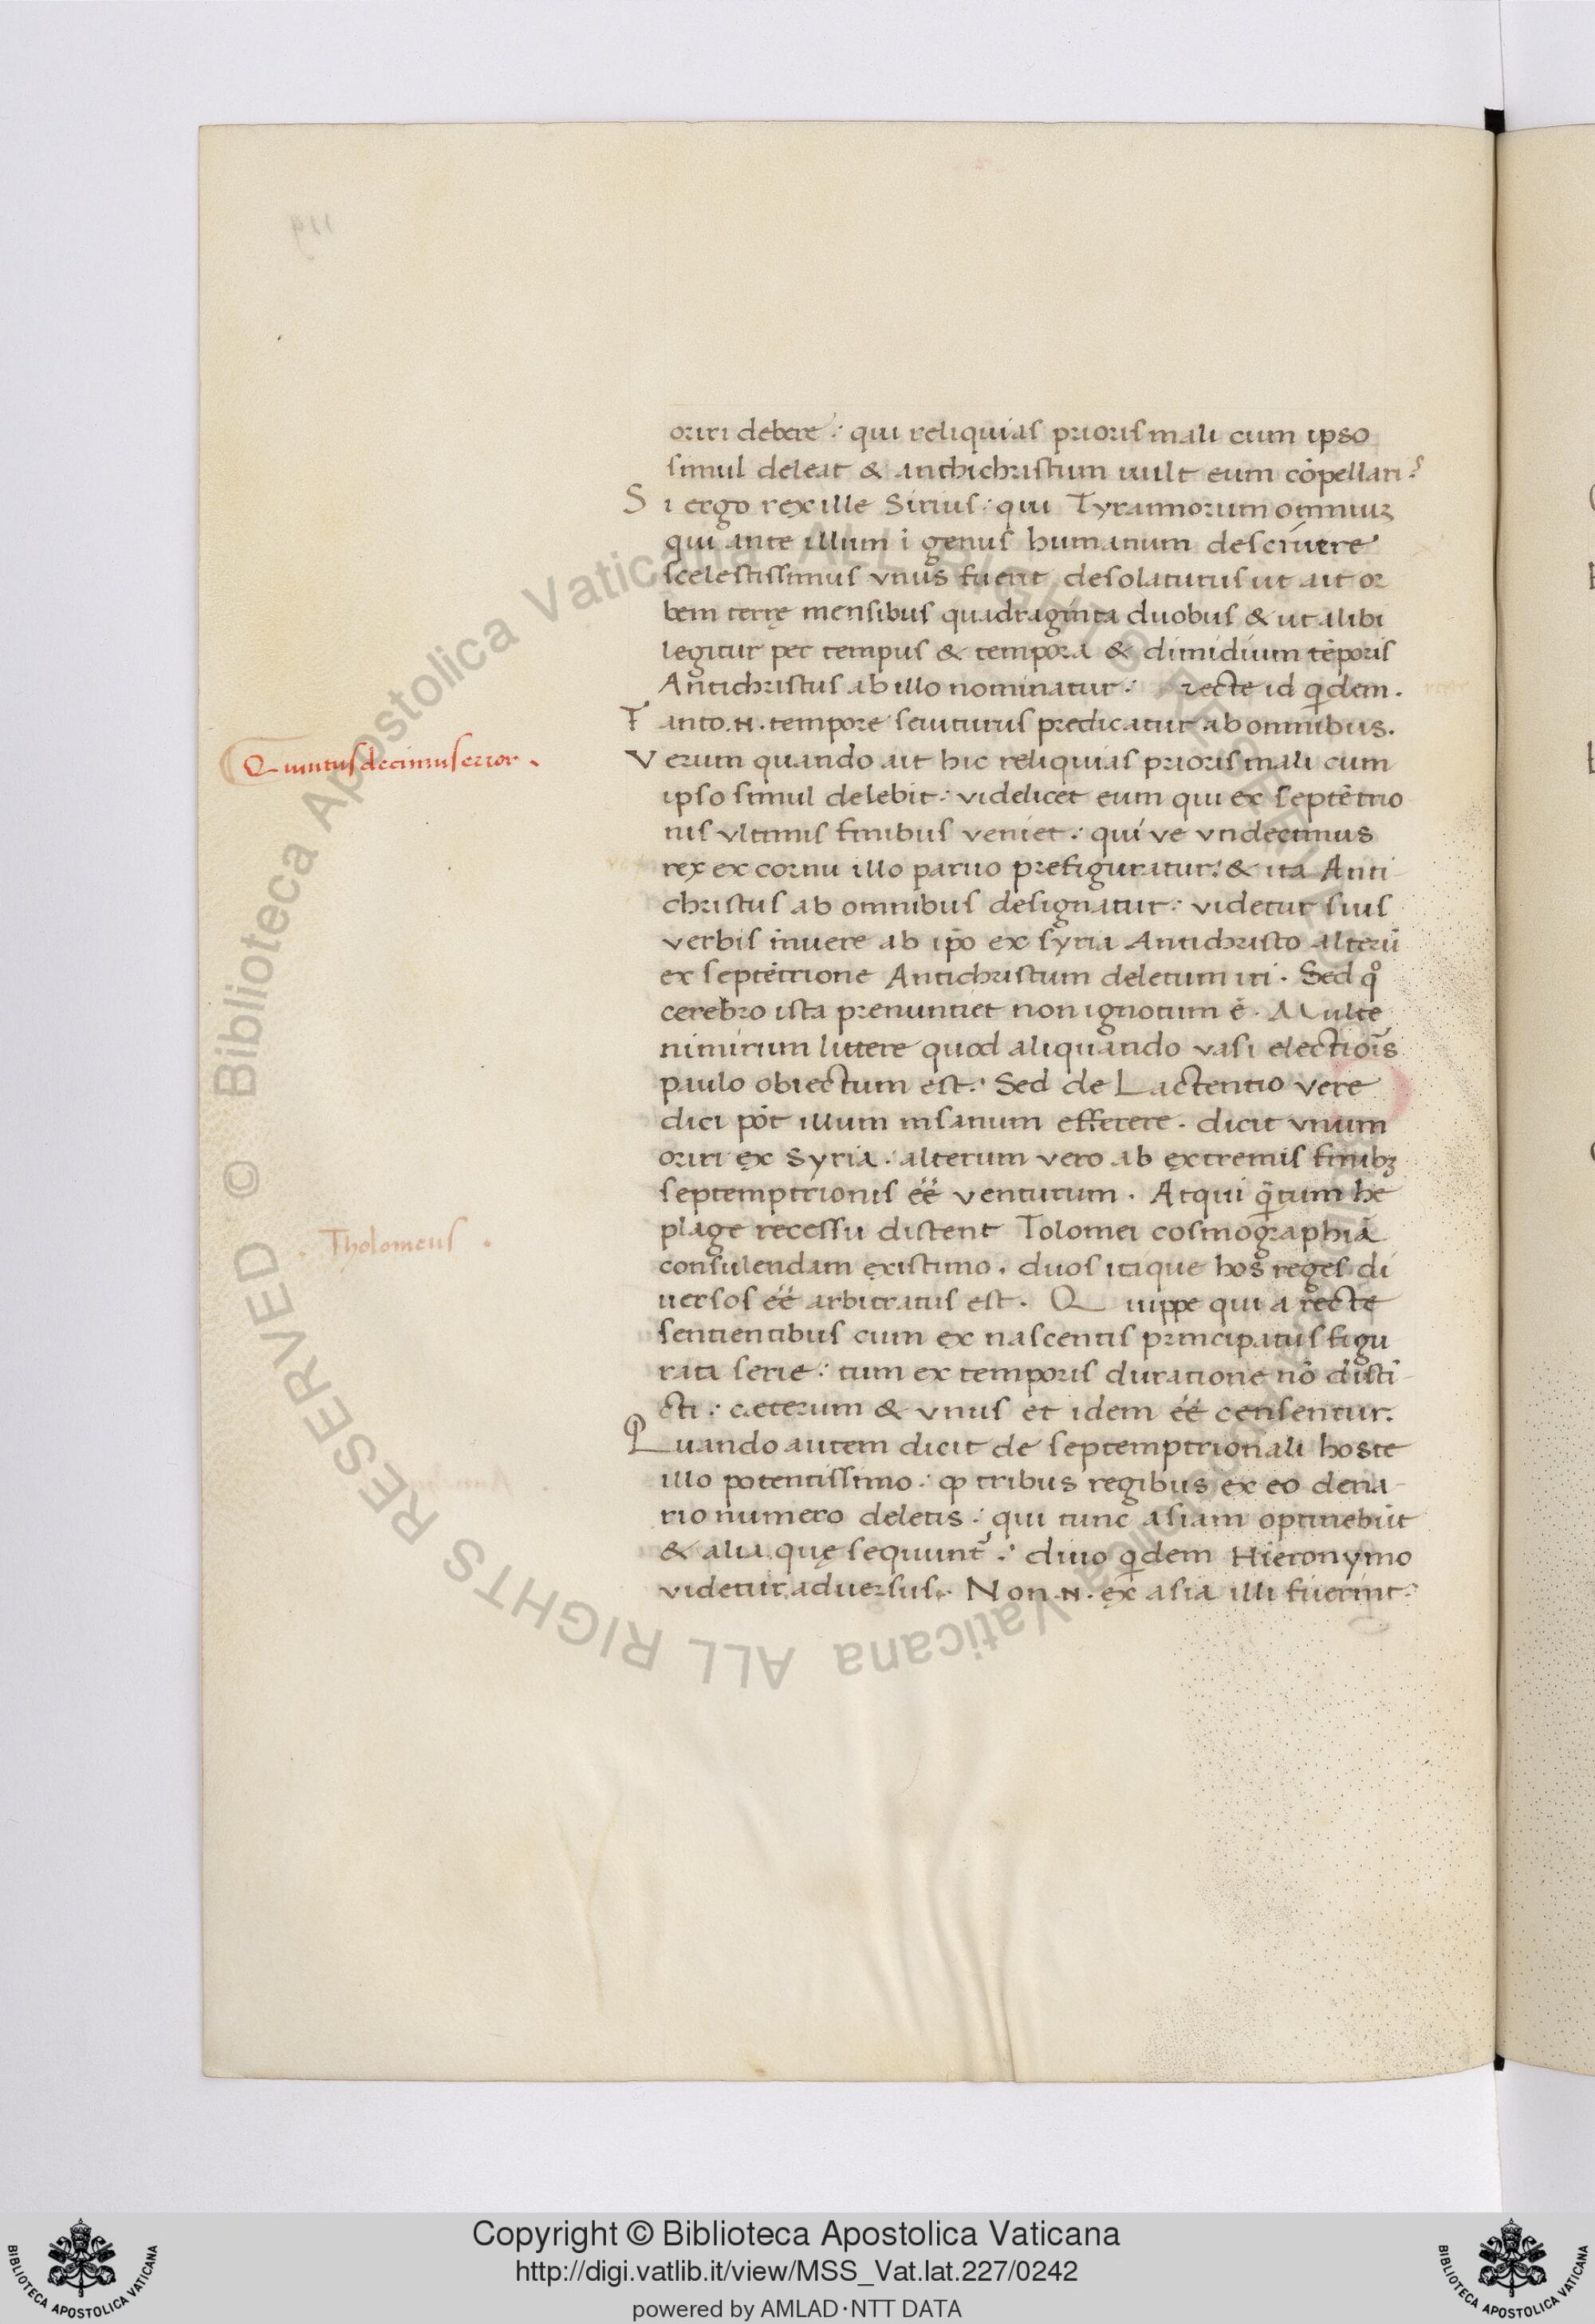 oriri debere : qui reliquias prioris mali cum ipso
simul deleat & antichristum uult eum cōpellari :
Si ergo rex ille Sirius : qui Tyrannorum omniuꝫ
qui ante illum ī genus humanum desciuere
scelestissimus vnus fuerit desolaturus ut ait or
bem terrę mensibus quadraginta duobus & ut alibi
legitur per tempus & tempora & dimidium tēporis
Antichristus ab illo nominatur : recte id qͥdem .
Tanto .N. tempore seuiturus predicatur ab omnibus .
Quintus decimus error .
Verum quando ait hic reliquias prioris mali cum
ipso simul delebit : videlicet eum qui ex septētrio
nis vltimis finibus veniet : qui ve vndecimus
rex ex cornu illo paruo prefiguratur : & ita Anti-
christus ab omnibus designatur : videtur suis
verbis īnuere ab ip̄o ex syria Antichristo alterū
ex septētrione Antichristum deletum iri . Sed qͦ
cerebro ista prenuntiet non ignotum ē . Multe
nimirum littere quod aliquando vasi electiōis
paulo obiectum est : Sed de Lactentio vere
dici pōt illum insanum efferere . dicit vnum
oriri ex Syria : alterum vero ab extremis finibꝫ
septemptrionis ēē venturum . Atqui qͣ̄tum he
plage recessu distent Tolomei cosmographiā
Tholomeus .
consulendam existimo . duos itaque hos reges di
uersos ēē arbitratus est . Quippe qui a recte
sentientibus cum ex nascentis principatus figu
rata serie : tum ex temporis duratione nō disti-
cti : cæterum & vnus et idem ēē censentur .
Quando autem dicit de septemptrionali hoste
illo potentissimo : ꝙ tribus regibus ex eo dena-
rio numero deletis : qui tunc asiam optinebūt
& alia quę sequunt̄ : diuo qͥdem Hieronymo
videtur aduersus . Non .N. ex asia illi fuerint :
Copyright © Biblioteca Apostolica Vaticana
http://digi.vatlib.it/view/MSS_Vat.lat.227/0242
powered by AMLAD·NTT DATA